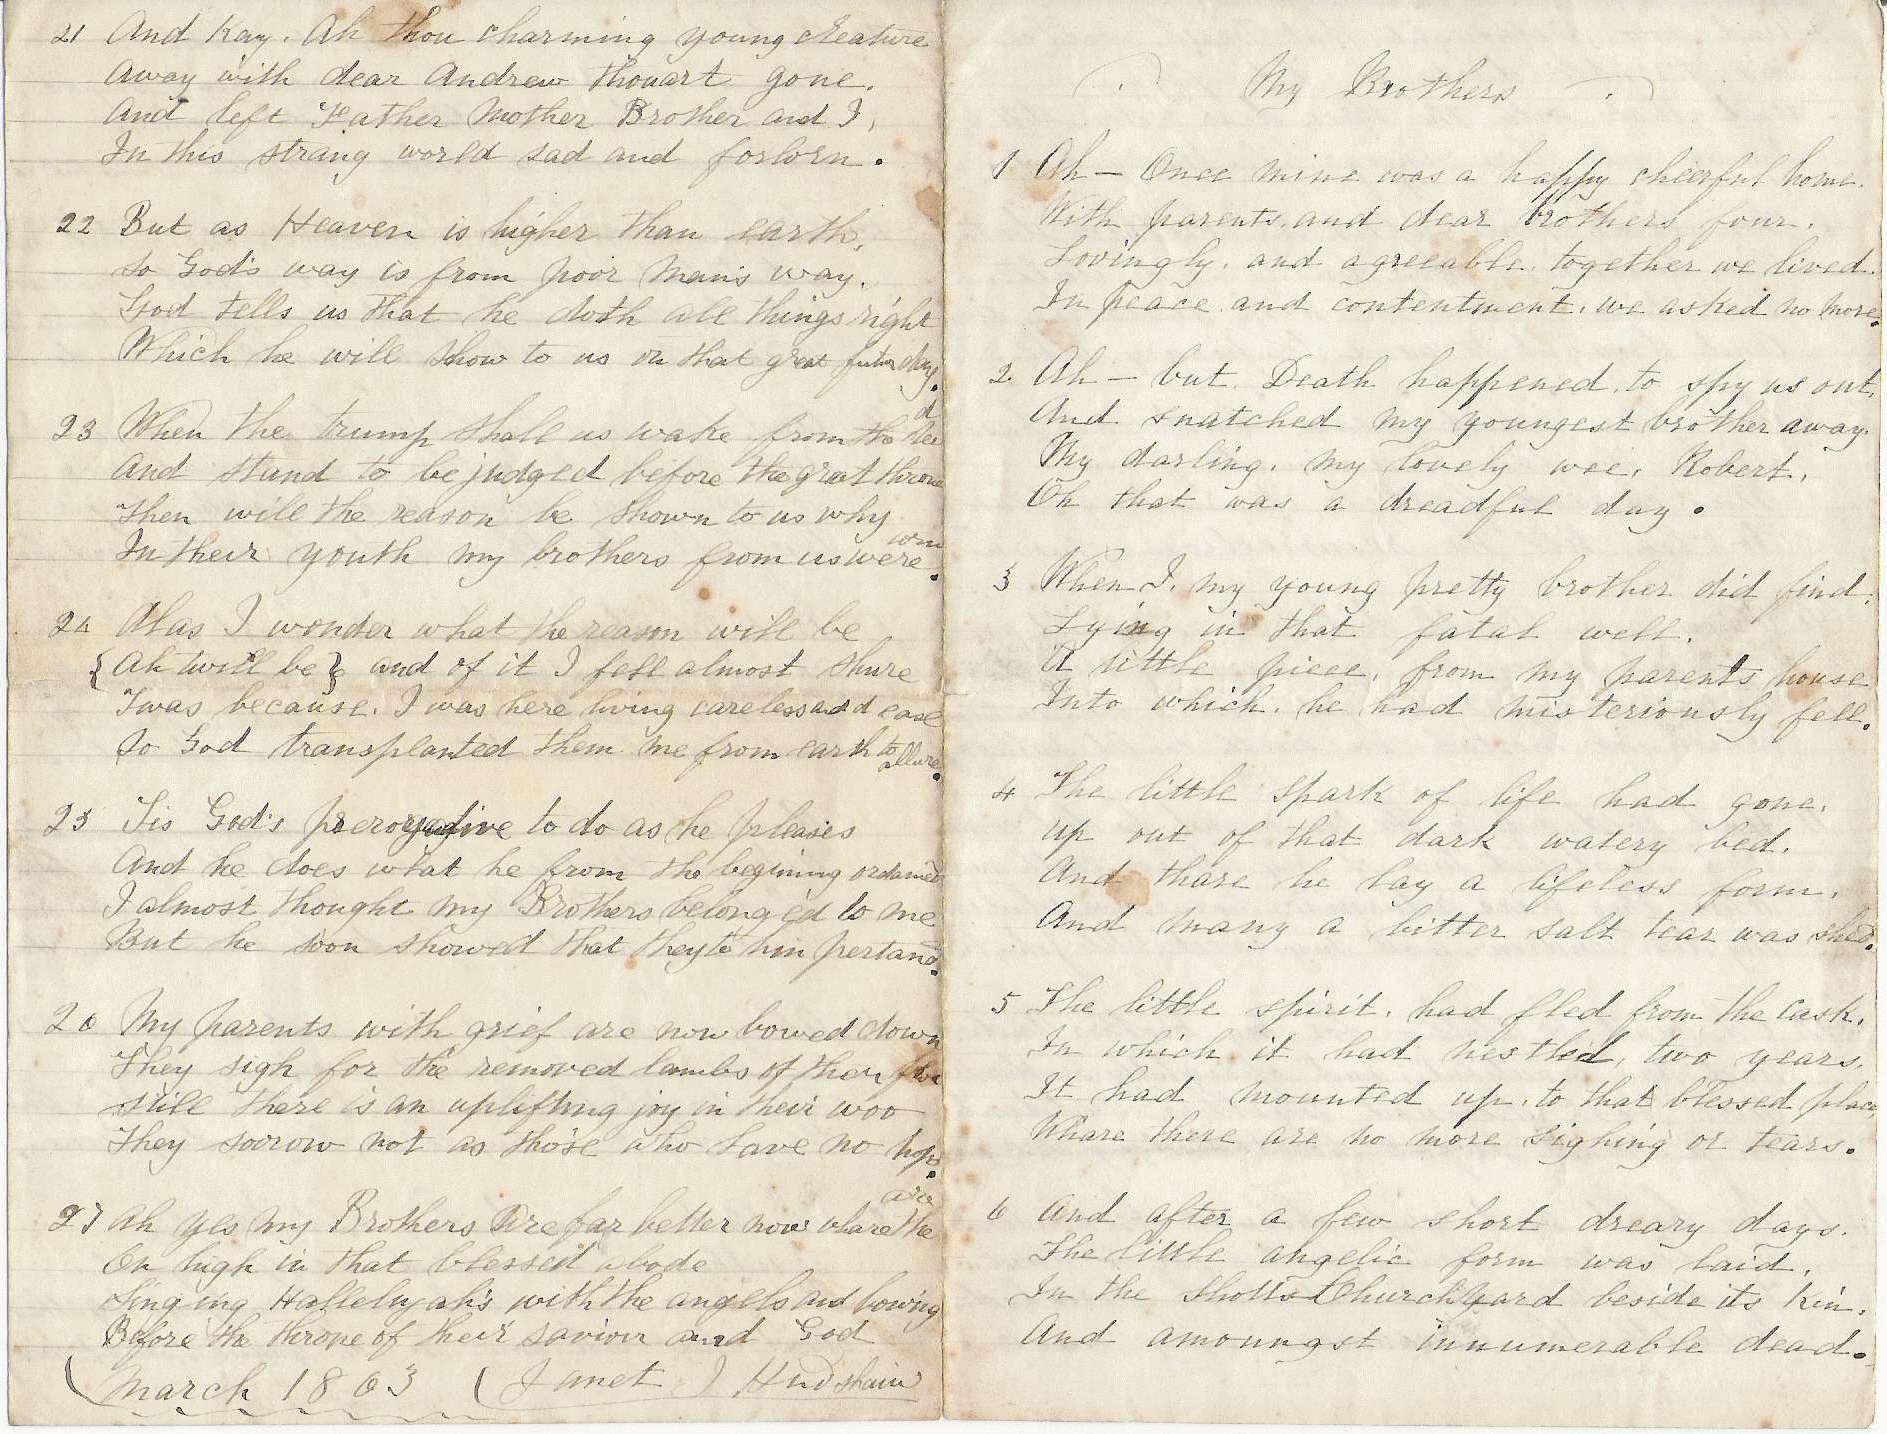 21 And Kay. Ah thou charming young creature
Away with dear Andrew thouart gone.
And left Father Mother Brother and I,
In this strang world sad and forlorn.
22 But as Heaven is higher than earth,
So God's way is from poor man's way.
God tells us that he doth all things right
Which he will show to us on that great futur day.
23 When the trump shall us wake from the dead
And stand to be judged before the great throne
Then will the reason be shown to us why
In their youth my brothers from us were
24 Alas I wonder what the reason will be
{Ah twill be} and of it I fell almost shure
Twas because. I was here living careless and ease
So God transplanted them me from earth to allure.
25 Tis God's prerogative to do as he pleases
And he does what he from the begining ordained
I almost thought my Brothers belonged to me
But he soon showed that they to him pertand.
26 My parents with grief are now bowed down
They sigh for the removed lambs of their
still there is an uplifting joy in their woo
They sorrow not as those who have no hop.
27 Ah yes my Brothers are far better now whare the are
On high in that blessed abode
Singing Hallelujah's with the angels and bowing
Before the throne of their saviour and God
(March 1863 (Janet) Hudshaw
My Brothers
1 Ah — Once mine was a happy cheerful home.
With parents. and dear brothers four.
Lovingly. and agreeable. together we lived.
In peace. and contentment. we asked no more.
2 Ah — but. Death happened. to spy us out.
And snatched my youngest brother away.
My darling. my lovely wee. Robert.
Oh that was a dreadful day.
3 When I. my young pretty brother did find.
Lying in that fatal well.
A little piece. from my parents house
Into which. he had misteriously fell.
4 The little spark of life had gone.
up out of that dark watery bed.
And thare he lay a lifeless form.
And many a bitter salt tear was shed.
5 The little spirit. had fled from the cask.
In which it had nestled, two years.
It had mounted up. to that blessed place,
Whare there are no more sighing or tears.
6 And after a few short dreary days.
The little angelic form was laid.
In the Shotts Churchyard beside its kin.
And amoungst innumerable dead.